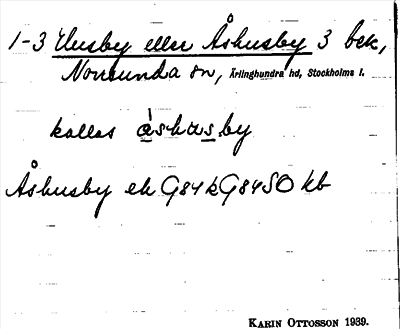 1-3 Husby eller Åshusby 3 bek,
Norrsunda sn, Ärlinghundra hd, Stockholms l.
kallas åshusby
Åshusby ek G84k G84SO kb
KARIN OTTOSSON 1939.